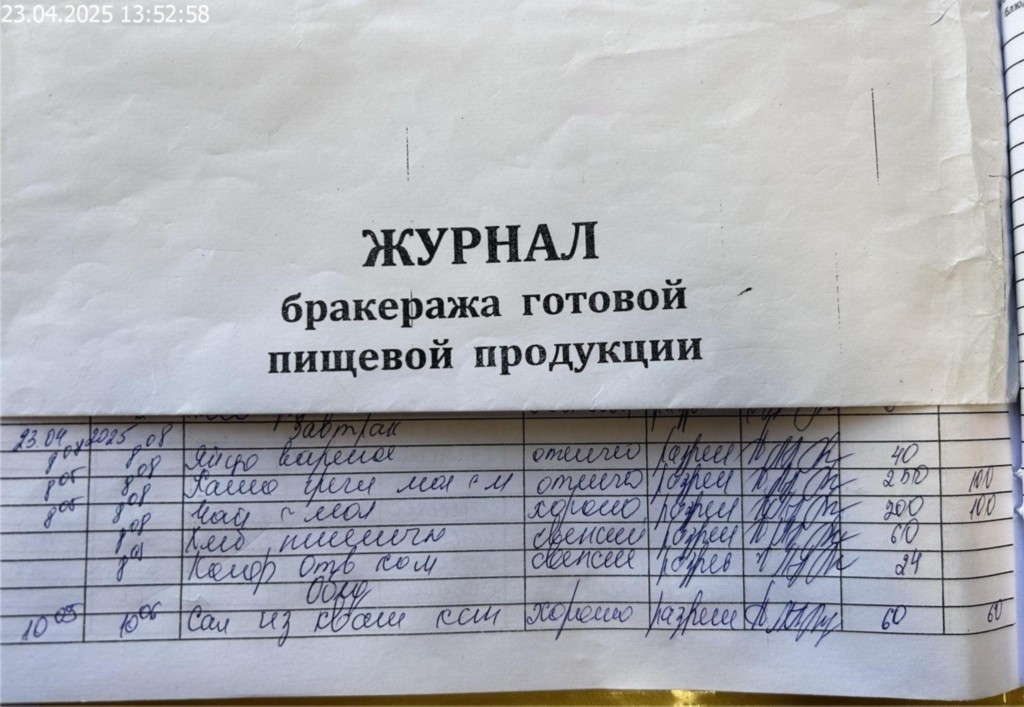 23.04.2025 13:52:58
ЖУРНАЛ
бракеража готовой
пищевой продукции
23.04 2025 Завтрак
8⁰⁸ Яйцо вареное отлично разреш 40
8⁰⁵ 8⁰⁸ Каша греч мол с м отлично разреш 250 100
8⁰⁵ 8⁰⁸ Чай с мол хорошо разреш 200 100
8⁰⁸ Хлеб пшеничн свежий разреш 60
отв свежий разреш 24
Обед
10⁰⁵ 10⁰⁶ Сал из кваш кап хорошо разреш 60 60